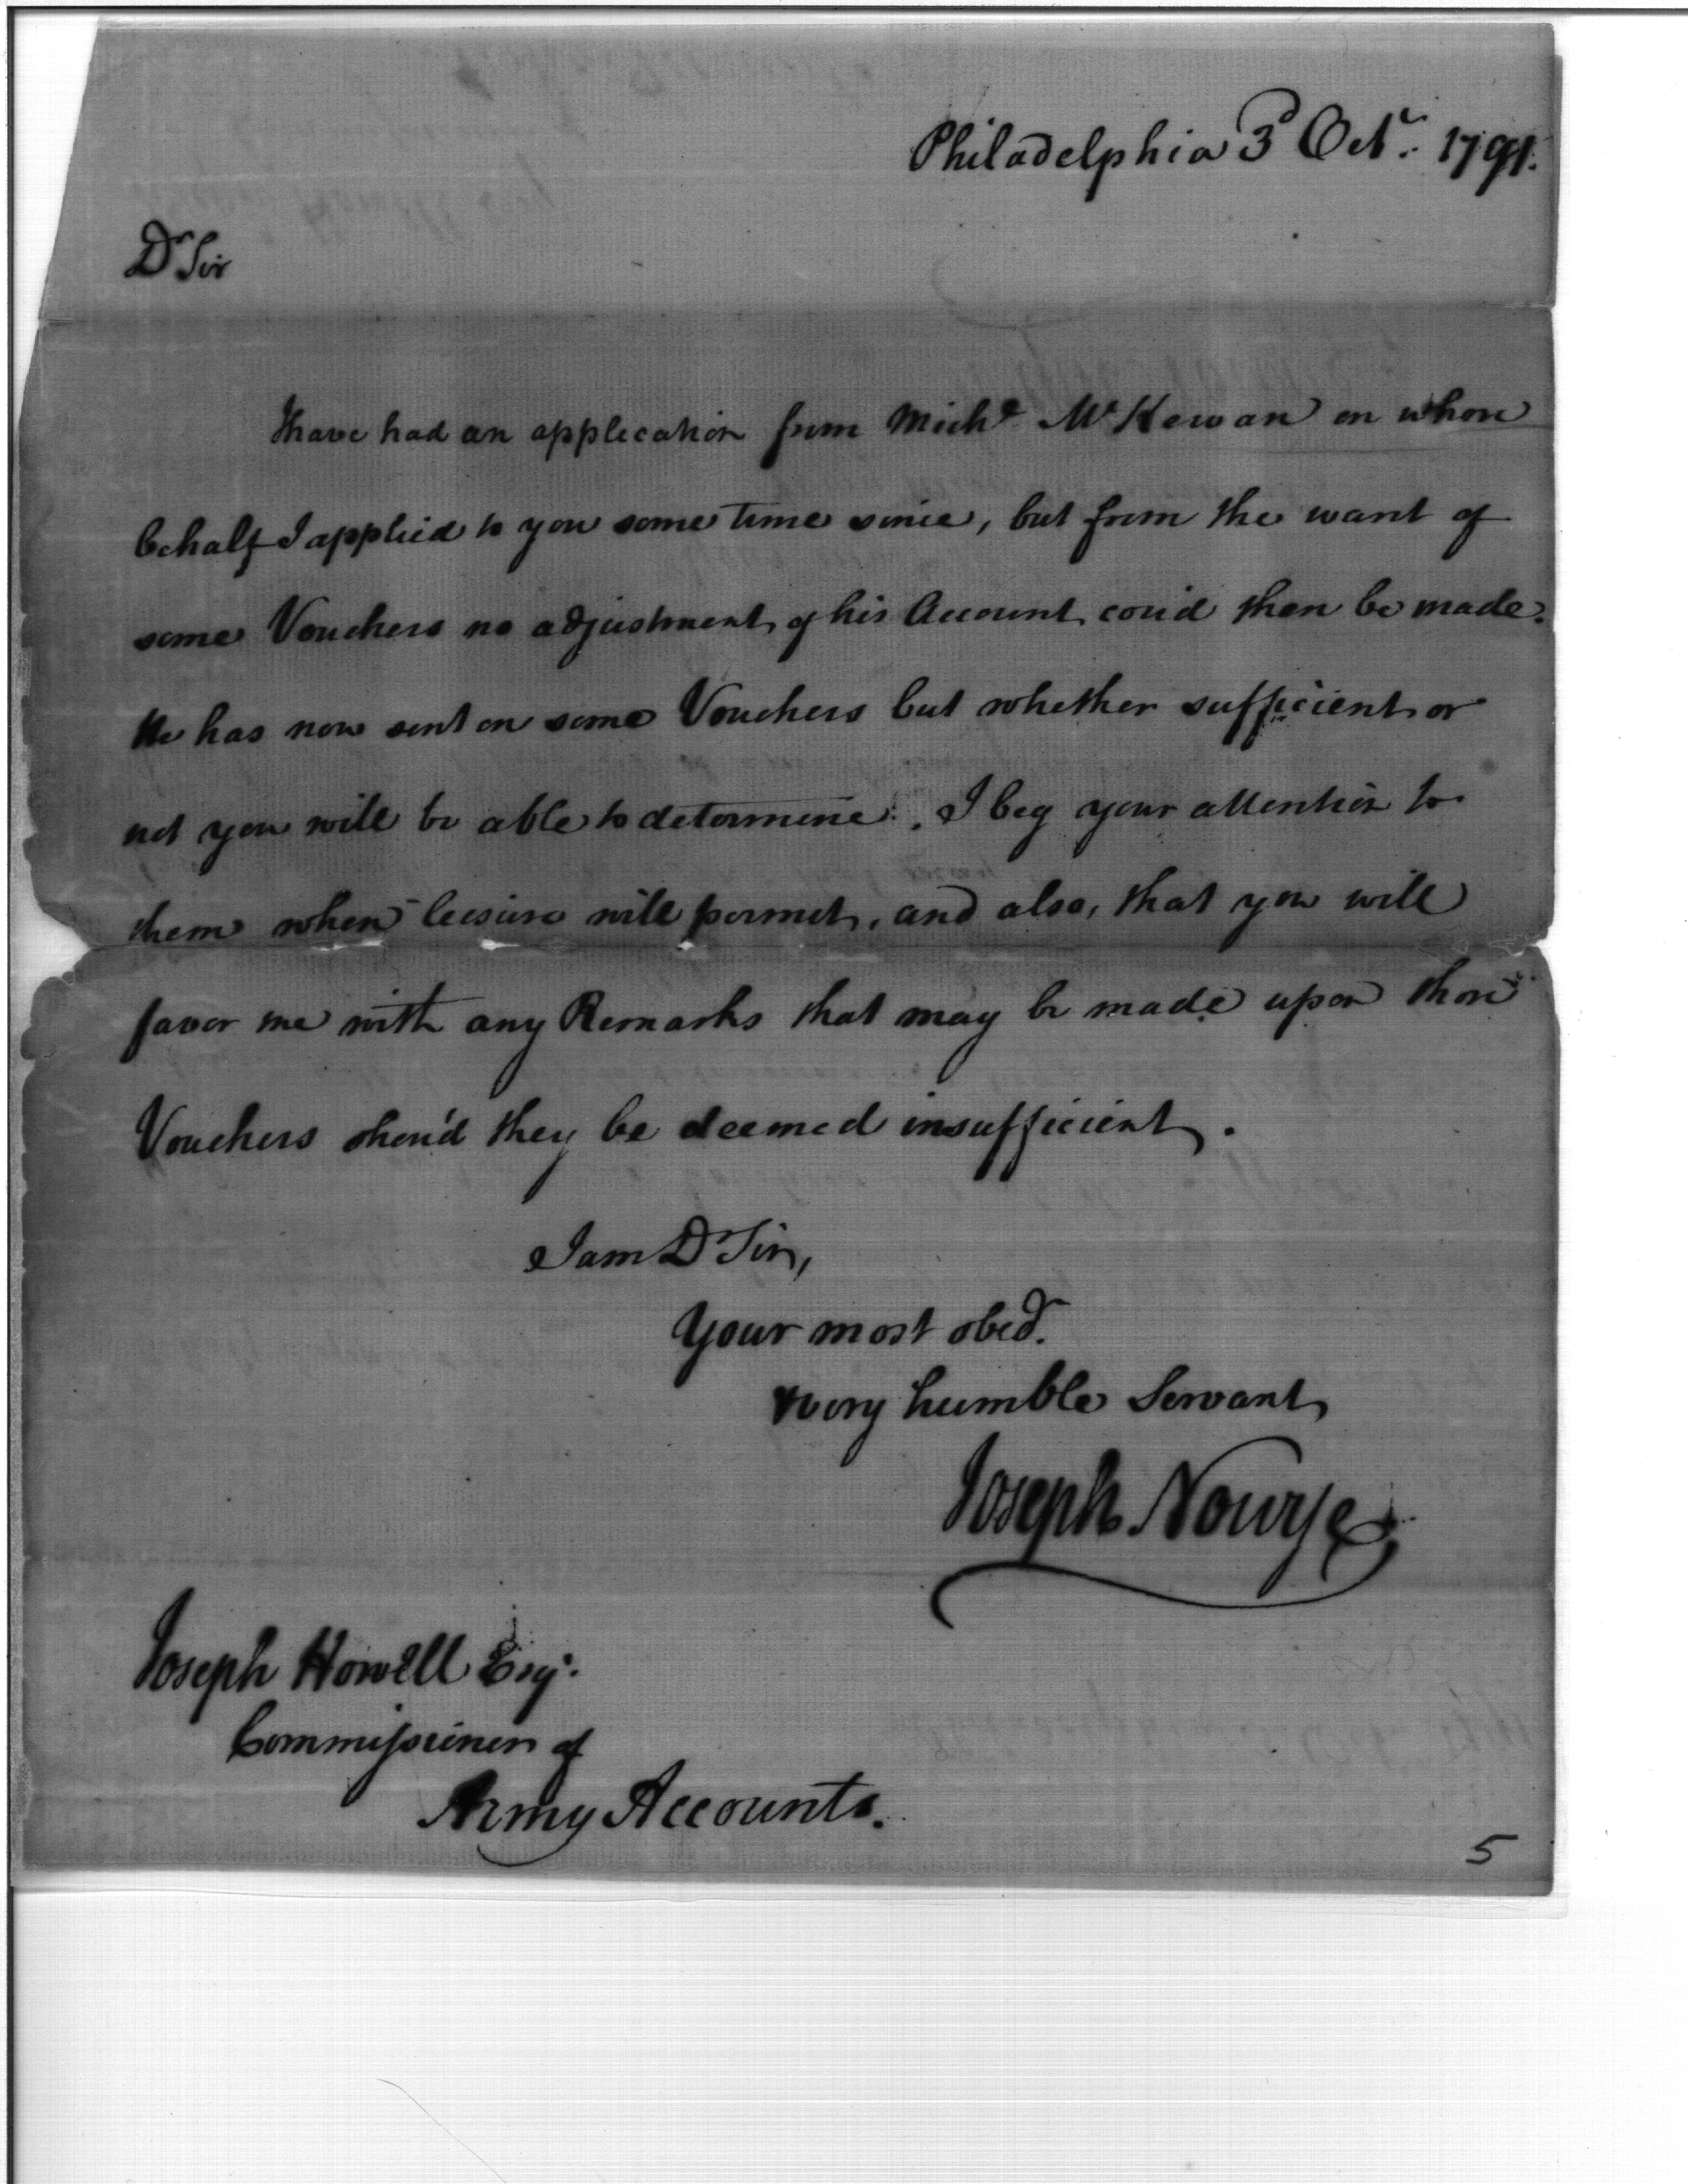 Philadelphia 3d Octr. 1791.
Dr Sir
I have had an application from Michl McKewan on whose
behalf I applied to you some time since, but from the want of
some Vouchers no adjustment of his Account cou'd then be made.
He has now sent on some Vouchers but whether sufficient or
not you will be able to determine. I beg your attention to
them when leisure will permit, and also, that you will
favor me with any Remarks that may be made upon those
Vouchers shou'd they be deemed insufficient.
I am Dr Sir,
Your most obedt.
& very humble Servant
Joseph Nourse
Joseph Howell Esqr.
Commissioner of
Army Accounts.
5